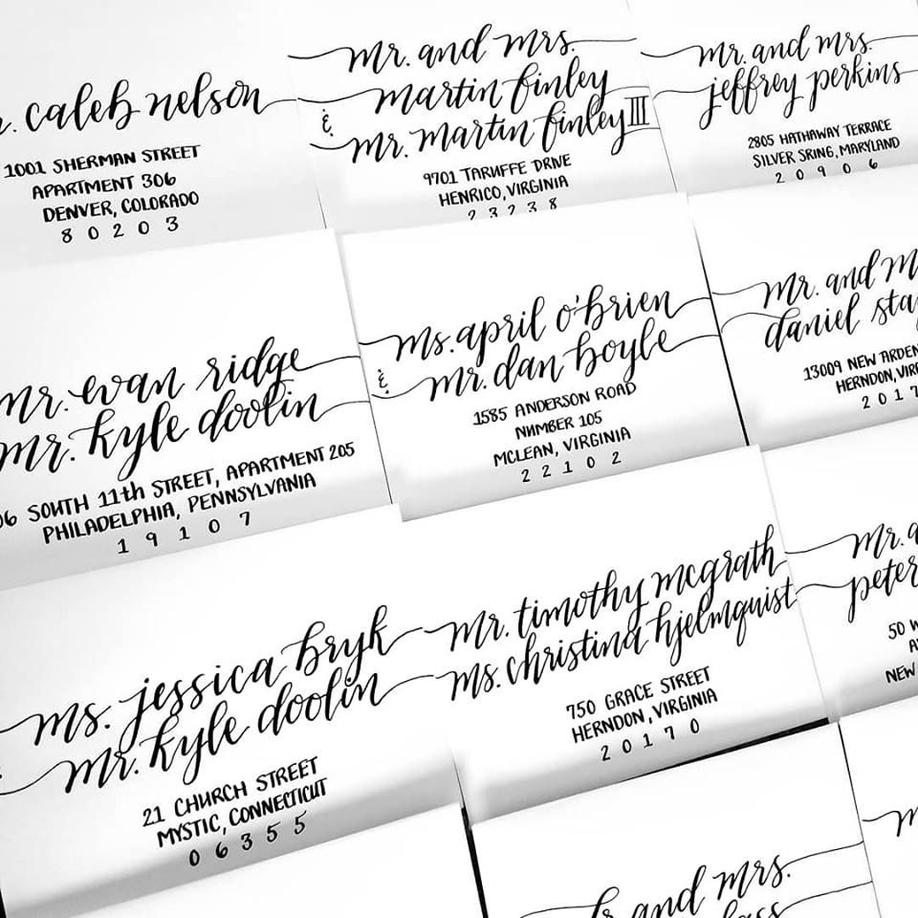 caleb nelson
1001 SHERMAN STREET
APARTMENT 306
DENVER, COLORADO
80203
mr. and mrs.
martin finley
&
mr. martin finley III
9701 TARUFFE DRIVE
HENRICO, VIRGINIA
23238
mr. and mrs.
jeffrey perkins
2805 HATHAWAY TERRACE
SILVER SRING, MARYLAND
20906
mr. evan ridge
mr. kyle doolin
SOUTH 11th STREET, APARTMENT 205
PHILADELPHIA, PENNSYLVANIA
19107
ms. april o'brien
&
mr. dan boyle
1585 ANDERSON ROAD
NUMBER 105
MCLEAN, VIRGINIA
22102
mr. and
daniel
13009 NEW
HERNDON,
ms. jessica bryk
mr. kyle doolin
21 CHURCH STREET
MYSTIC, CONNECTICUT
06355
mr. timothy mcgrath
ms. christina hjelmquist
750 GRACE STREET
HERNDON, VIRGINIA
20170
mr.
peter
50
NEW
and mrs.